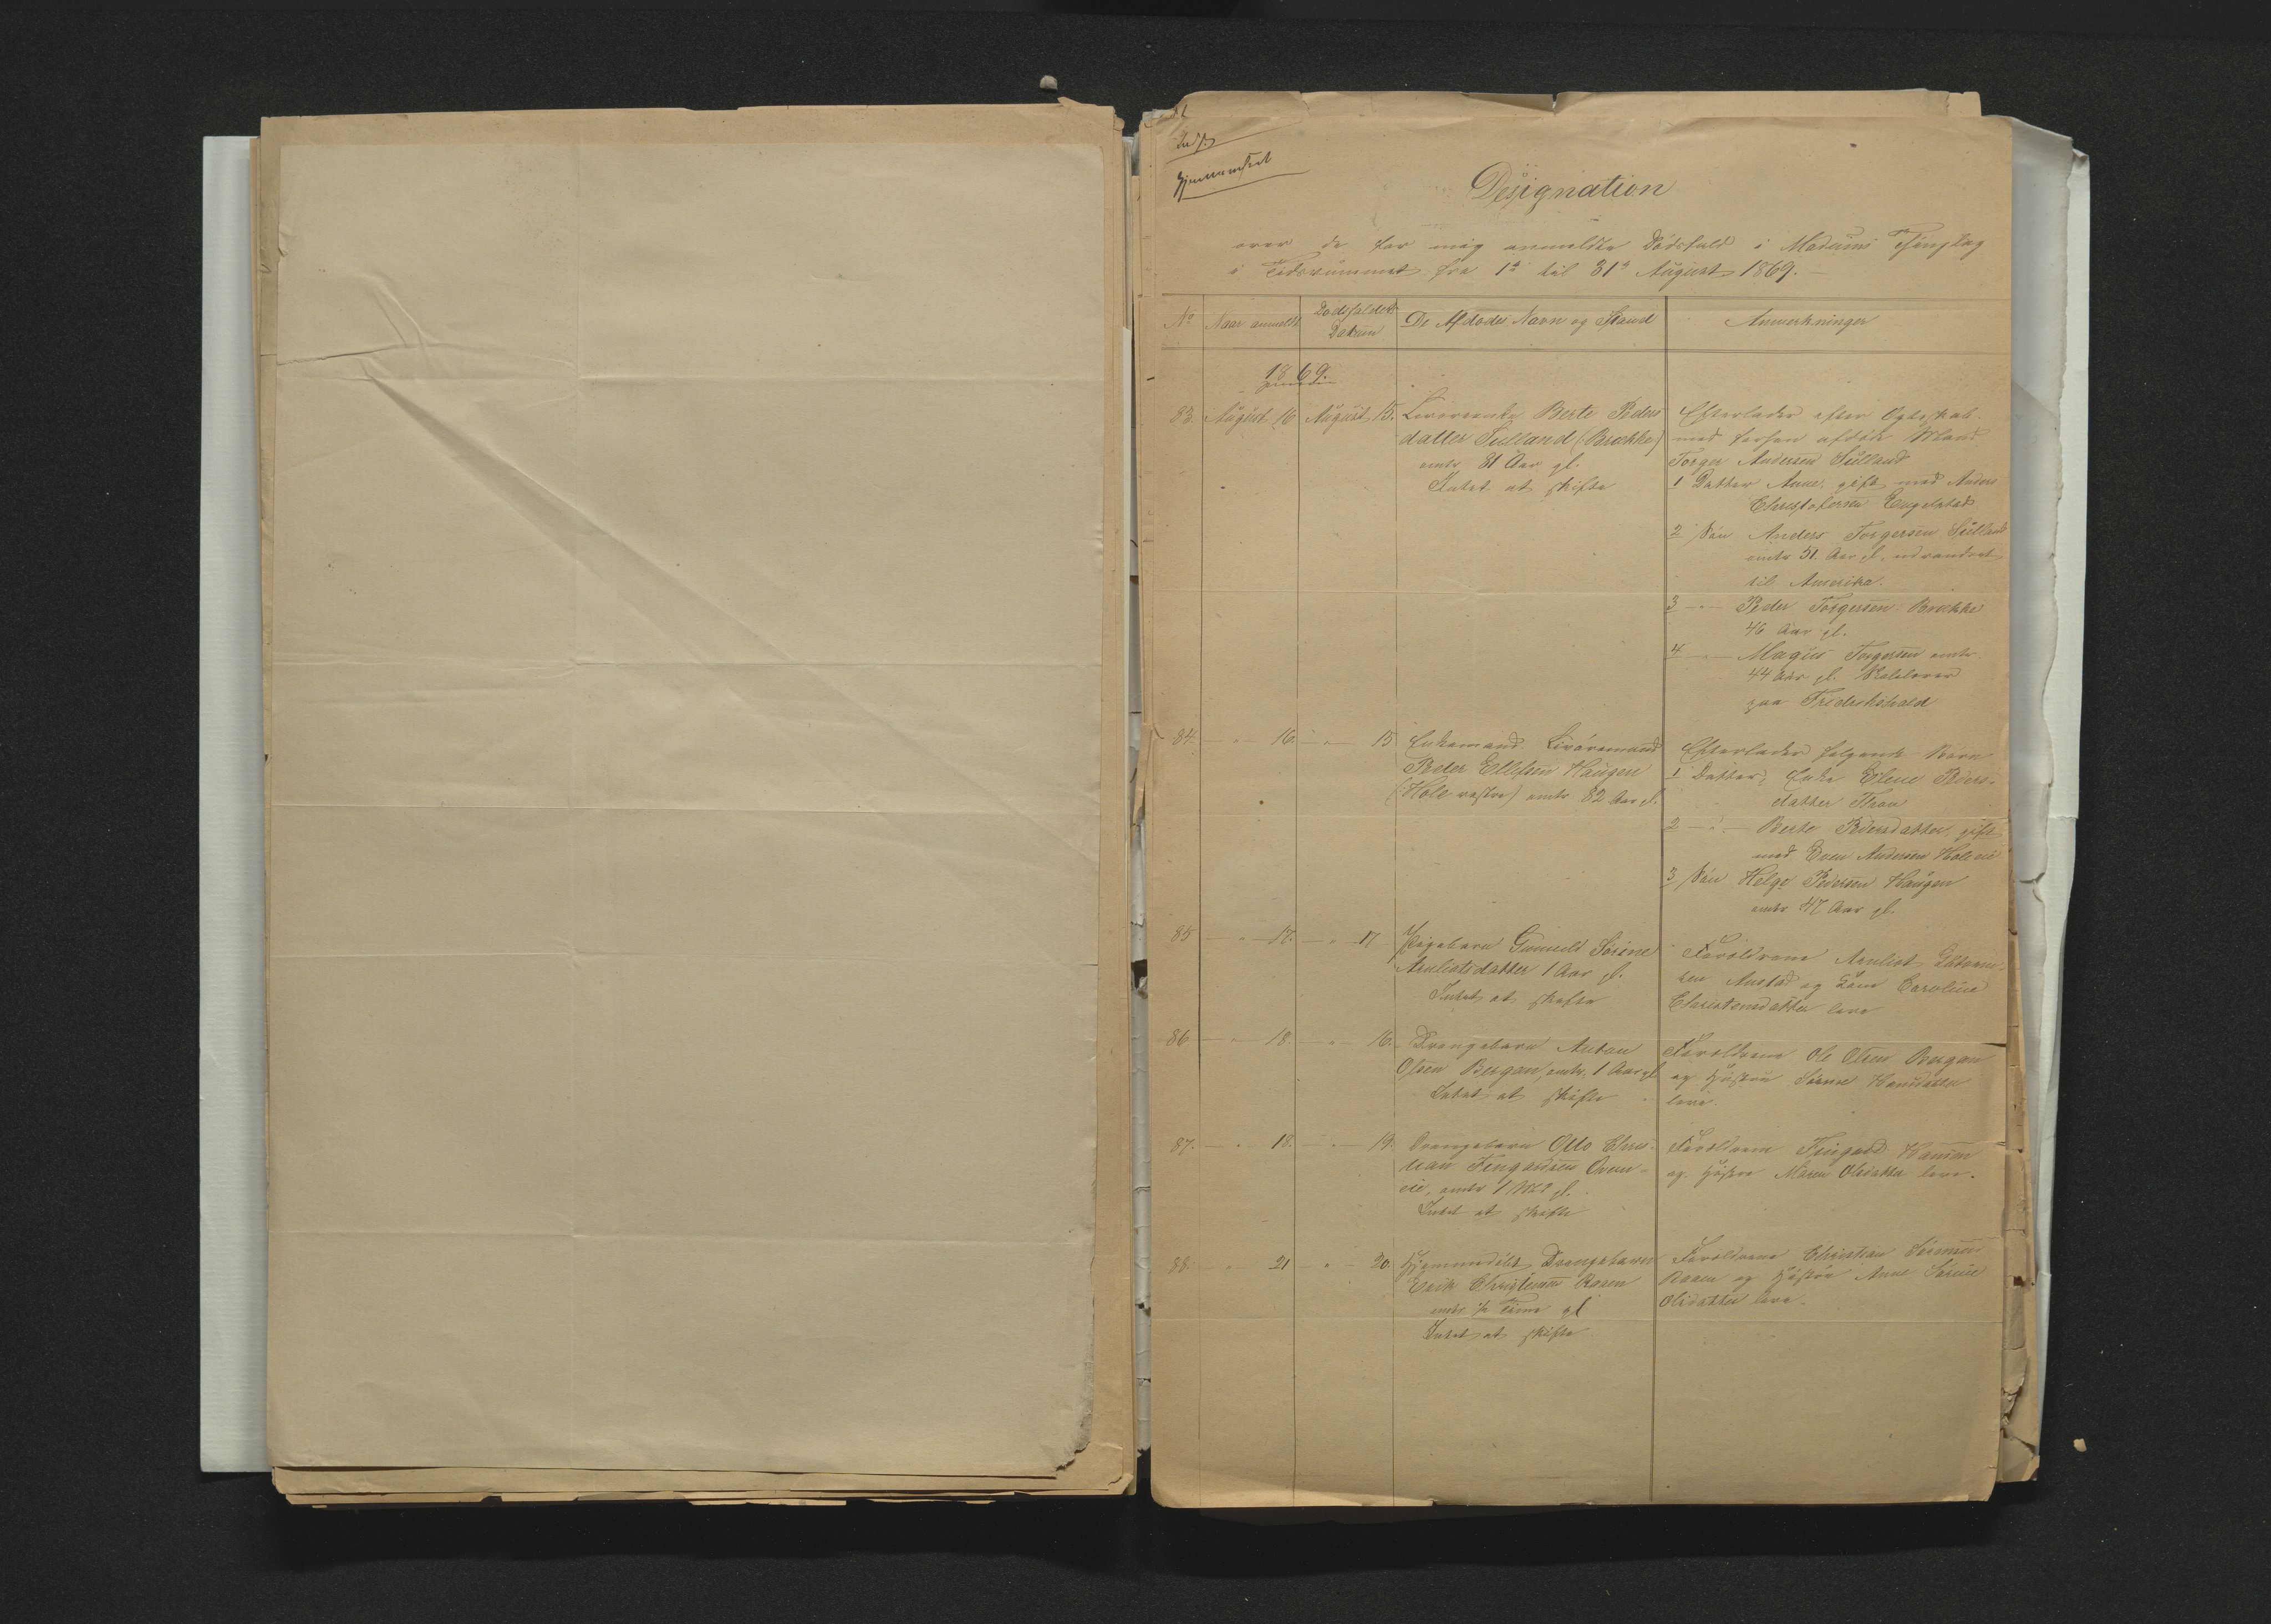 Designation
over de for mig anmeldte Dødsfald i Modums Thinglag
i Tidsrummet fra 1ste til 31te August 1869.
No
Naar anmeldt
Dødsfaldets
Datum
De Afdødes Navn og Stand
Anmerkninger
1869.
83. August 16 August 15. Livørende Berte Peders
datter Sulland (Brække)
omtr 81 Aar gl.
Intet at skifte
Efterlader efter Ægteskab
med forhen afdøde Mand
Torger Andersen Sulland
1 Datter Anne, gift med Anders
Christofersen Engelstad
2 Søn Anders Torgersen Sulland
omtr 51 Aar gl. udvandret
til Amerika.
3 — " — Peder Torgersen Brække
46 Aar gl.
4 — " — Magnus Torgersen omtr
44 Aar gl.
paa Frederikshald
84. — " — 16. — " — 15 Enkemand Livøremand
Peder Ellefsen Haugen
(Hole vestre) omtr 82 Aar gl.
Efterlader følgende Børn
1 Datter, Enke Elene Peders-
datter Thon
2 — " — Berte Pedersdatter, gift
med Even Andersen Holeeie
3 Søn Helge Pedersen Haugen
omtr 47 Aar gl.
85 — " — 17. — " — 17 Pigebarn Gunnild Sørine
Arnliotsdatter 1 Aar gl.
Intet at skifte
Forældrene Arnliot
sen og Kone Caroline
Christensdatter leve
86 — " — 18 — " — 16. Drengebarn Anton
Olsen Bergan, omtr. 1 Aar gl
Intet at skifte
Forældrene Ole Olsen Bergan
og Hustru Sørine Hansdatter
leve.
87. — " — 18. — " — 19. Drengebarn Otto Chris-
tian Fingardsen Oven-
eie, omtr 1 gl.
Intet at skifte
Forældrene Fingard Hansen
og Hustru Maren Olsdatter leve.
88. — " — 21 — " — 20. Hjemmedøbt Drengebarn
Erik Christiansen Raaen
omtr ½ Time gl
Intet at skifte
Forældrene Christian Simensen
Raaen og Hustru Anne Sørine
Olsdatter leve.